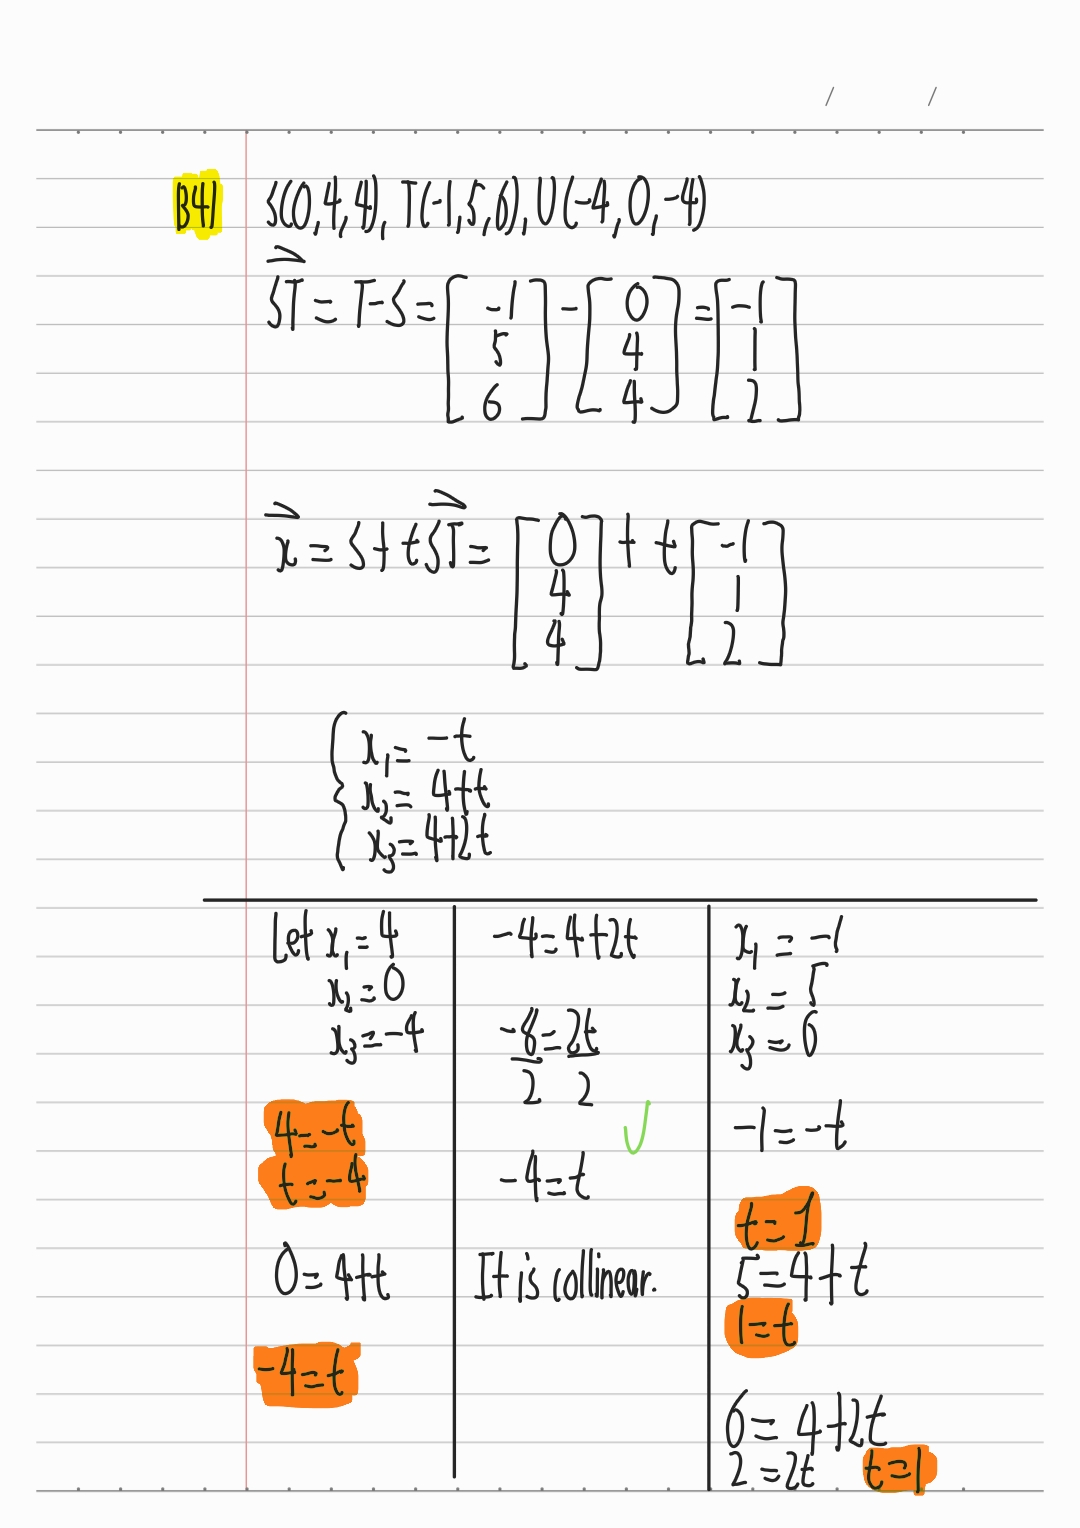 / /
B4) S(0,4,4), T(-1,5,6), U(-4,0,-4)
→ST = T-S = [-1 5 6] - [0 4 4] = [-1 1 2]
→x = S + t→ST = [0 4 4] + t[-1 1 2]
{ x₁ = -t
x₂ = 4+t
x₃ = 4+2t
Let x₁ = 4
x₂ = 0
x₃ = -4
4 = -t
t = -4
0 = 4+t
-4 = t
-4 = 4+2t
-8 = 2t
2 2
✓
-4 = t
It is collinear.
x₁ = -1
x₂ = 5
x₃ = 6
-1 = -t
t = 1
5 = 4+t
1 = t
6 = 4+2t
2 = 2t t = 1